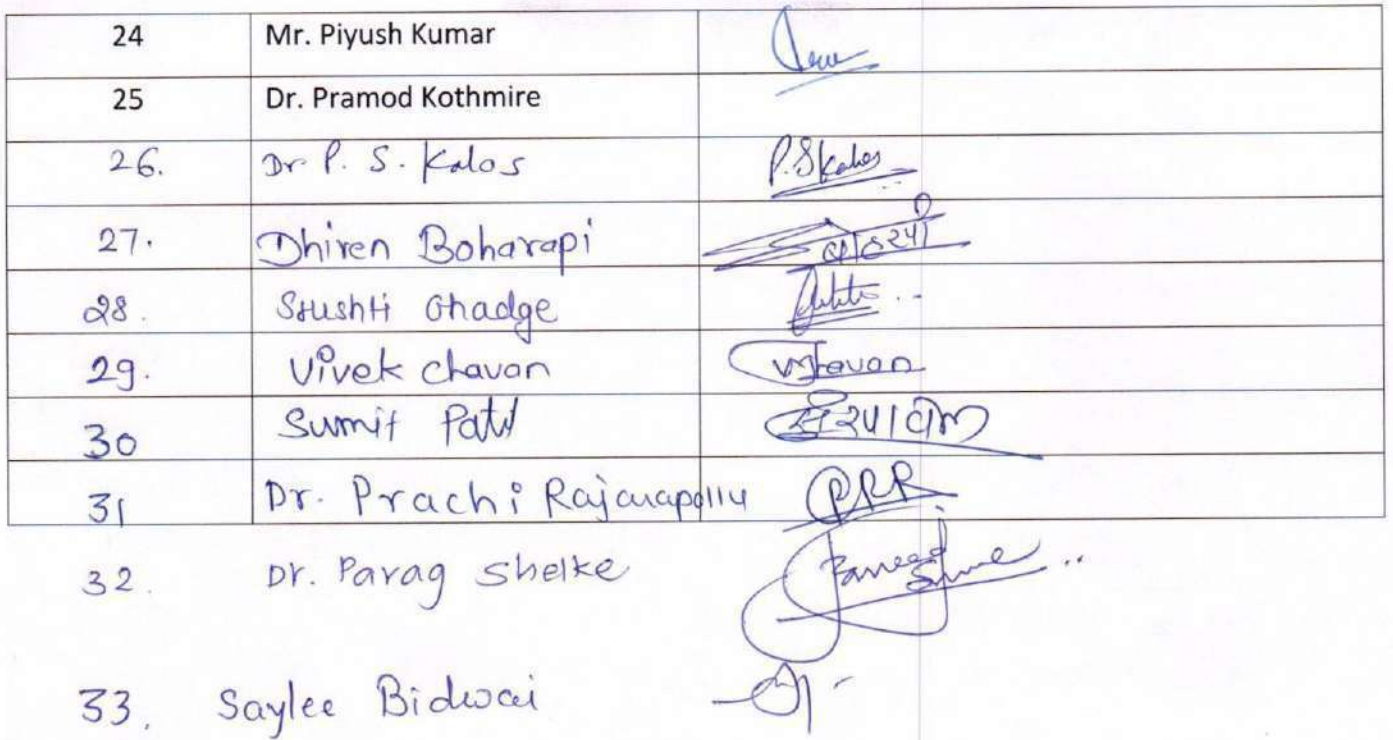 24 Mr. Piyush Kumar
25 Dr. Pramod Kothmire
26. Dr P. S. Kalos P.S Kalos
27. Dhiren Boharapi
28. Srushti Ghadge
29. Vivek Chavan VChavan
30 Sumit Patil
31 Dr. Prachi Rajarapollu PRR
32. Dr. Parag Shelke
33. Saylee Bidwai